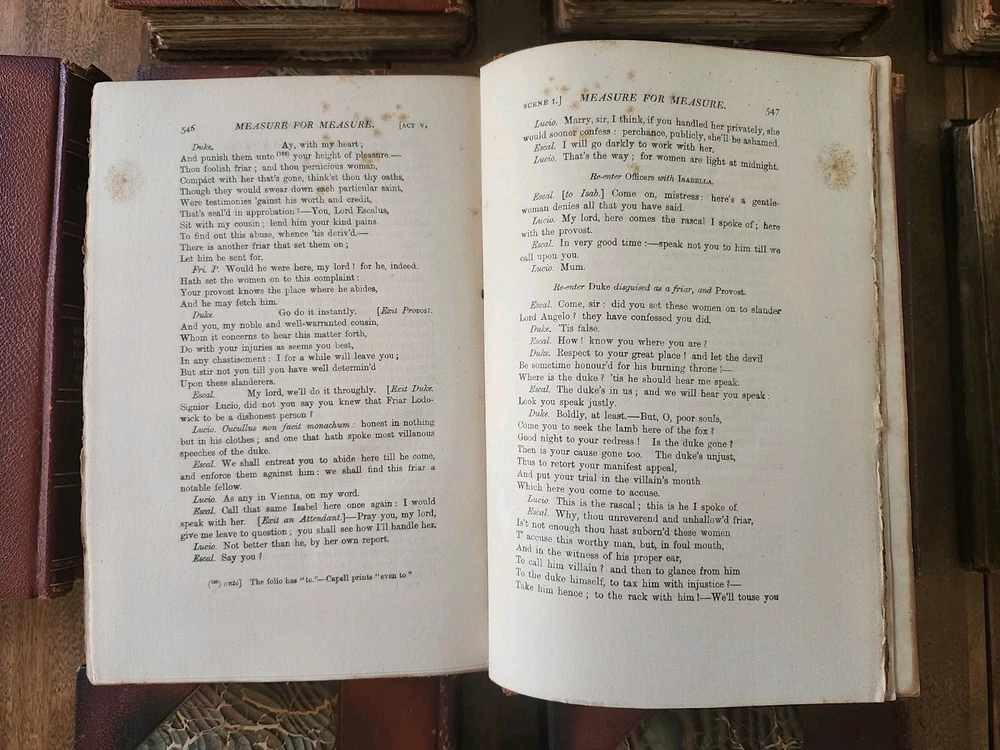 546 MEASURE FOR MEASURE. [ACT V.
Duke. Ay, with my heart;
And punish them unto (168) your height of pleasure.—
Thou foolish friar; and thou pernicious woman,
Compáct with her that's gone, think'st thou thy oaths,
Though they would swear down each particular saint,
Were testimonies 'gainst his worth and credit,
That's seal'd in approbation?—You, Lord Escalus,
Sit with my cousin; lend him your kind pains
To find out this abuse, whence 'tis deriv'd.—
There is another friar that set them on;
Let him be sent for.
Fri. P. Would he were here, my lord! for he, indeed.
Hath set the women on to this complaint:
Your provost knows the place where he abides,
And he may fetch him.
Duke. Go do it instantly. [Exit Provost.
And you, my noble and well-warranted cousin,
Whom it concerns to hear this matter forth,
Do with your injuries as seems you best,
In any chastisement: I for a while will leave you;
But stir not you till you have well determin'd
Upon these slanderers.
Escal. My lord, we'll do it throughly. [Exit Duke.
Signior Lucio, did not you say you knew that Friar Lodo-
wick to be a dishonest person?
Lucio. Cucullus non facit monachum: honest in nothing
but in his clothes; and one that hath spoke most villanous
speeches of the duke.
Escal. We shall entreat you to abide here till he come,
and enforce them against him: we shall find this friar a
notable fellow.
Lucio. As any in Vienna, on my word.
Escal. Call that same Isabel here once again: I would
speak with her. [Exit an Attendant.]—Pray you, my lord,
give me leave to question; you shall see how I'll handle her.
Lucio. Not better than he, by her own report.
Escal. Say you?
(168) unto] The folio has "to."—Capell prints "even to."
SCENE I.] MEASURE FOR MEASURE. 547
Lucio. Marry, sir, I think, if you handled her privately, she
would sooner confess: perchance, publicly, she'll be ashamed.
Escal. I will go darkly to work with her.
Lucio. That's the way; for women are light at midnight.
Re-enter Officers with ISABELLA.
Escal. [to Isab.] Come on, mistress: here's a gentle-
woman denies all that you have said.
Lucio. My lord, here comes the rascal I spoke of; here
with the provost.
Escal. In very good time:—speak not you to him till we
call upon you.
Lucio. Mum.
Re-enter Duke disguised as a friar, and Provost.
Escal. Come, sir: did you set these women on to slander
Lord Angelo? they have confessed you did.
Duke. 'Tis false.
Escal. How! know you where you are?
Duke. Respect to your great place! and let the devil
Be sometime honour'd for his burning throne!—
Where is the duke? 'tis he should hear me speak.
Escal. The duke's in us; and we will hear you speak:
Look you speak justly.
Duke. Boldly, at least.—But, O, poor souls,
Come you to seek the lamb here of the fox?
Good night to your redress! Is the duke gone?
Then is your cause gone too. The duke's unjust,
Thus to retort your manifest appeal,
And put your trial in the villain's mouth
Which here you come to accuse.
Lucio. This is the rascal; this is he I spoke of.
Escal. Why, thou unreverend and unhallow'd friar,
Is't not enough thou hast suborn'd these women
T' accuse this worthy man, but, in foul mouth,
And in the witness of his proper ear,
To call him villain? and then to glance from him
To the duke himself, to tax him with injustice?—
Take him hence; to the rack with him!—We'll touse you